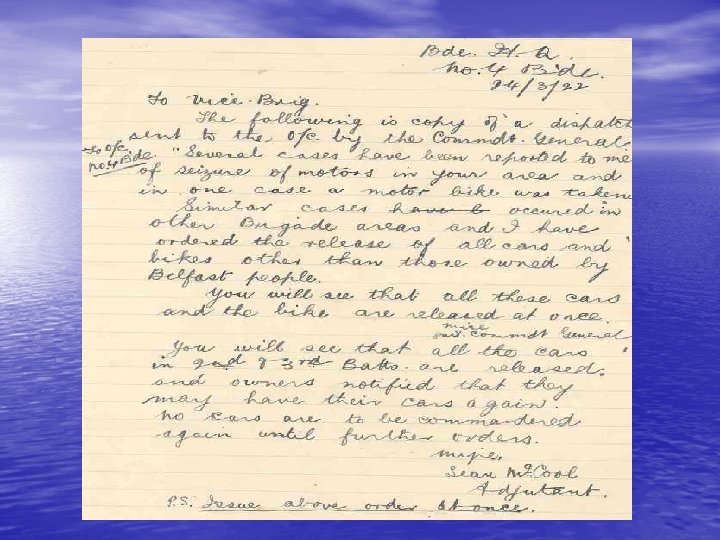 Bde. H. Q.
No. 4 Bde.
24/3/22
To Vice-Brig.
The following is copy of a dispatch
sent to the O/c. by the Commdt. General.
To O/C.
No 4 Bde.
"Several cases have been reported to me
of seizure of motors in your area and
in one case a motor bike was taken
Similar cases have b occured in
other Brigade areas and I have
ordered the release of all cars and
bikes other than those owned by
Belfast people.
You will see that all these cars
and the bike are released at once.
Commdt General
You will see that all the cars
in 2nd & 3rd Batts. are released.
and owners notified that they
may have their cars again.
No cars are to be commandered
again until further orders.
Sean McCool
Adjutant.
P.S. Issue above order at once.